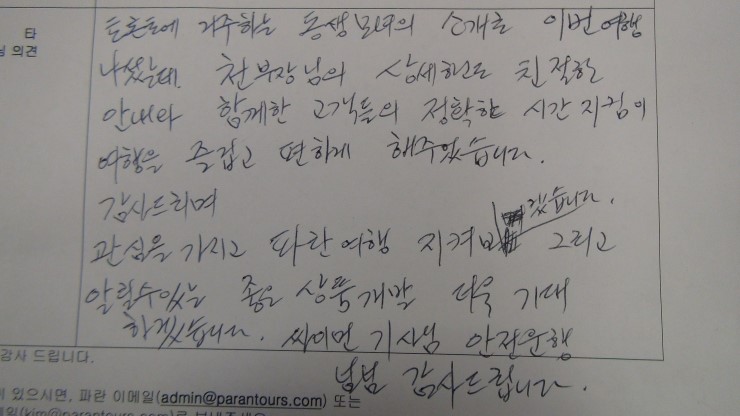 타
님 의견
토론토에 거주하는 동생모녀의 소개로 이번 여행
나섰는데. 천부장님의 상세하고도 친절한
안내와 함께한 고객들의 정확한 시간 지킴이
여행을 즐겁고 편하게 해주었습니다.
감사드리며
관심을 가지고 파란여행 지켜보겠습니다. 그리고
알릴수있는 좋은 상품개발 더욱 기대
하겠습니다. 싸이먼 기사님 안전운행
넘넘 감사드립니다.
감사 드립니다.
있으시면, 파란 이메일(admin@parantours.com) 또는